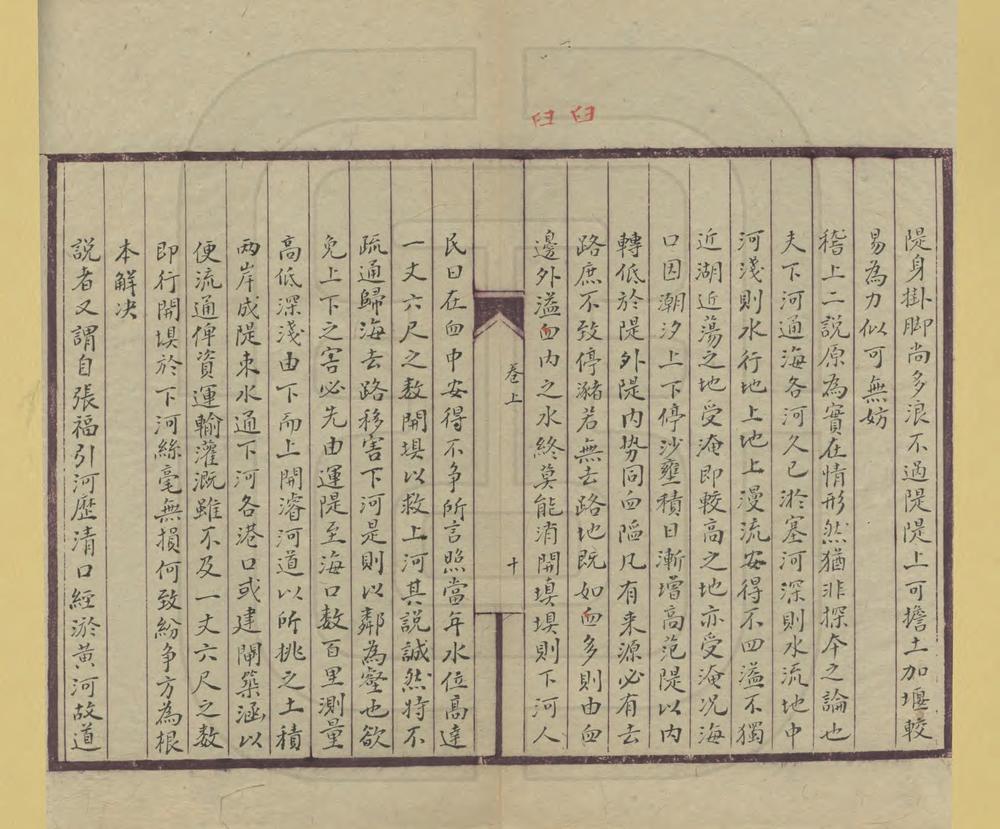 臼 臼
隄身掛脚尚多浪不過隄隄上可擔土加堰較
易為力似可無妨
稽上二說原為實在情形然猶非探本之論也
夫下河通海各河久已淤塞河深則水流地中
河淺則水行地上地上漫流安得不四溢不獨
近湖近蕩之地受淹即較高之地亦受淹况海
口因潮汐上下停沙壅積日漸增高范隄以内
轉低於隄外隄内势同血隔凡有来源必有去
路庶不致停豬若無去路地既如血多則由血
邊外溢血内之水終莫能消開埧埧則下河人
卷上
十
民曰在血中安得不争所言照當年水位高達
一丈六尺之数開埧以救上河其說誠然特不
疏通歸海去路移害下河是則以鄰為壑也欲
免上下之害必先由運隄至海口数百里測量
高低深淺由下而上開濬河道以所挑之土積
两岸成隄束水通下河各港口或建閘築涵以
便流通俾資運輸灌溉雖不及一丈六尺之数
即行開埧於下河絲毫無損何致紛争方為根
本解决
說者又謂自張福引河歷清口經淤黄河故道